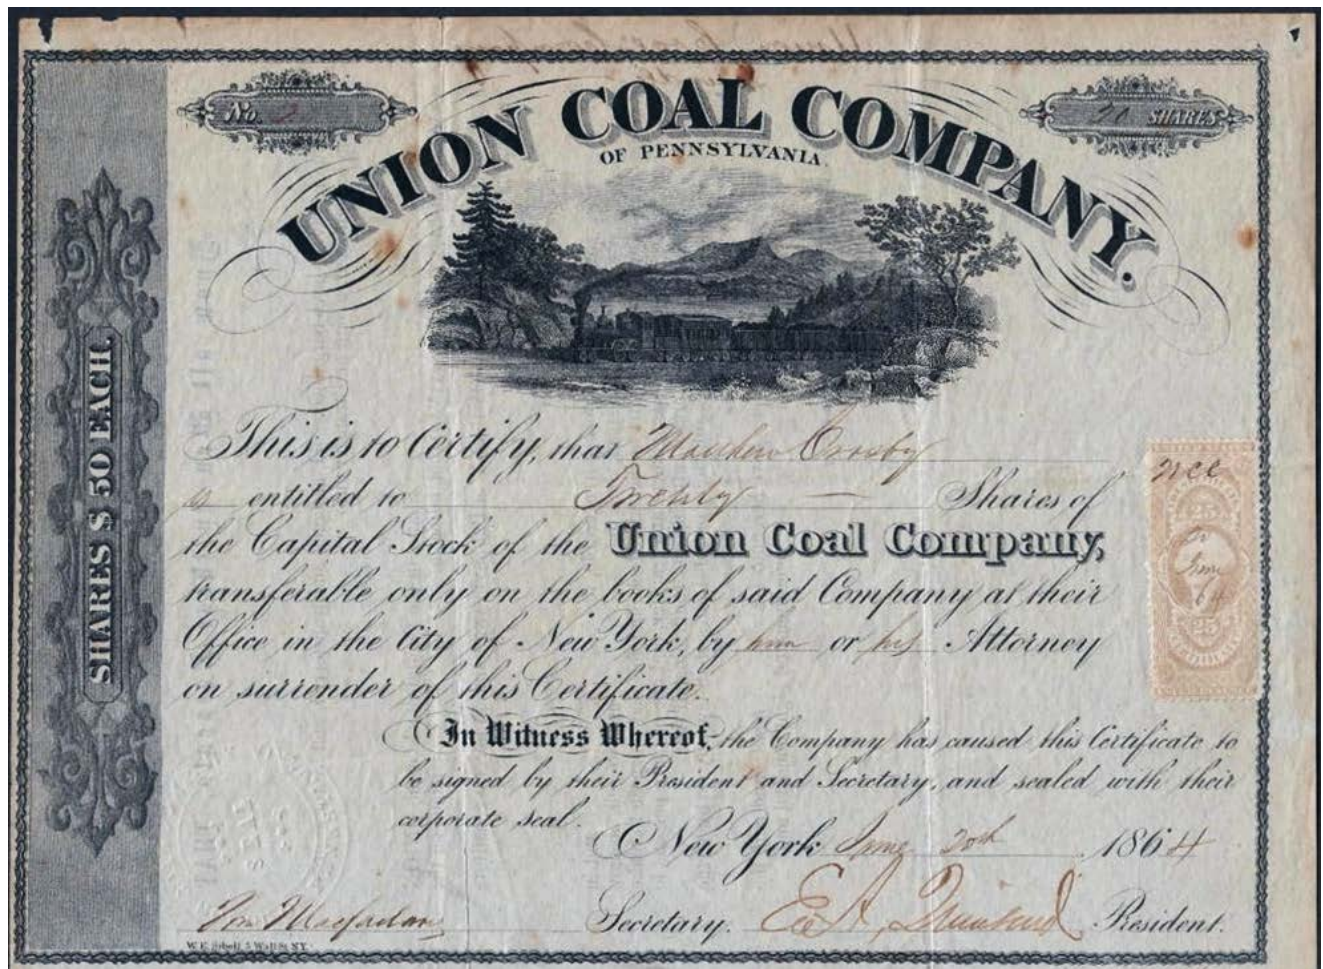 No. 2
20 SHARES
UNION COAL COMPANY.
OF PENNSYLVANIA.
SHARES $50 EACH.
This is to Certify, that Matthew Crosby
is entitled to Twenty Shares of
the Capital Stock of the Union Coal Company,
transferable only on the books of said Company at their
Office in the City of New York, by him or his Attorney
on surrender of this Certificate.
25
June
64
25
In Witness Whereof, the Company has caused this Certificate to
be signed by their President and Secretary, and sealed with their
corporate seal.
New York June 20th 1864
Wm Macfarlan Secretary. President.
W.E. Sibell, 5 Wall St. N.Y.